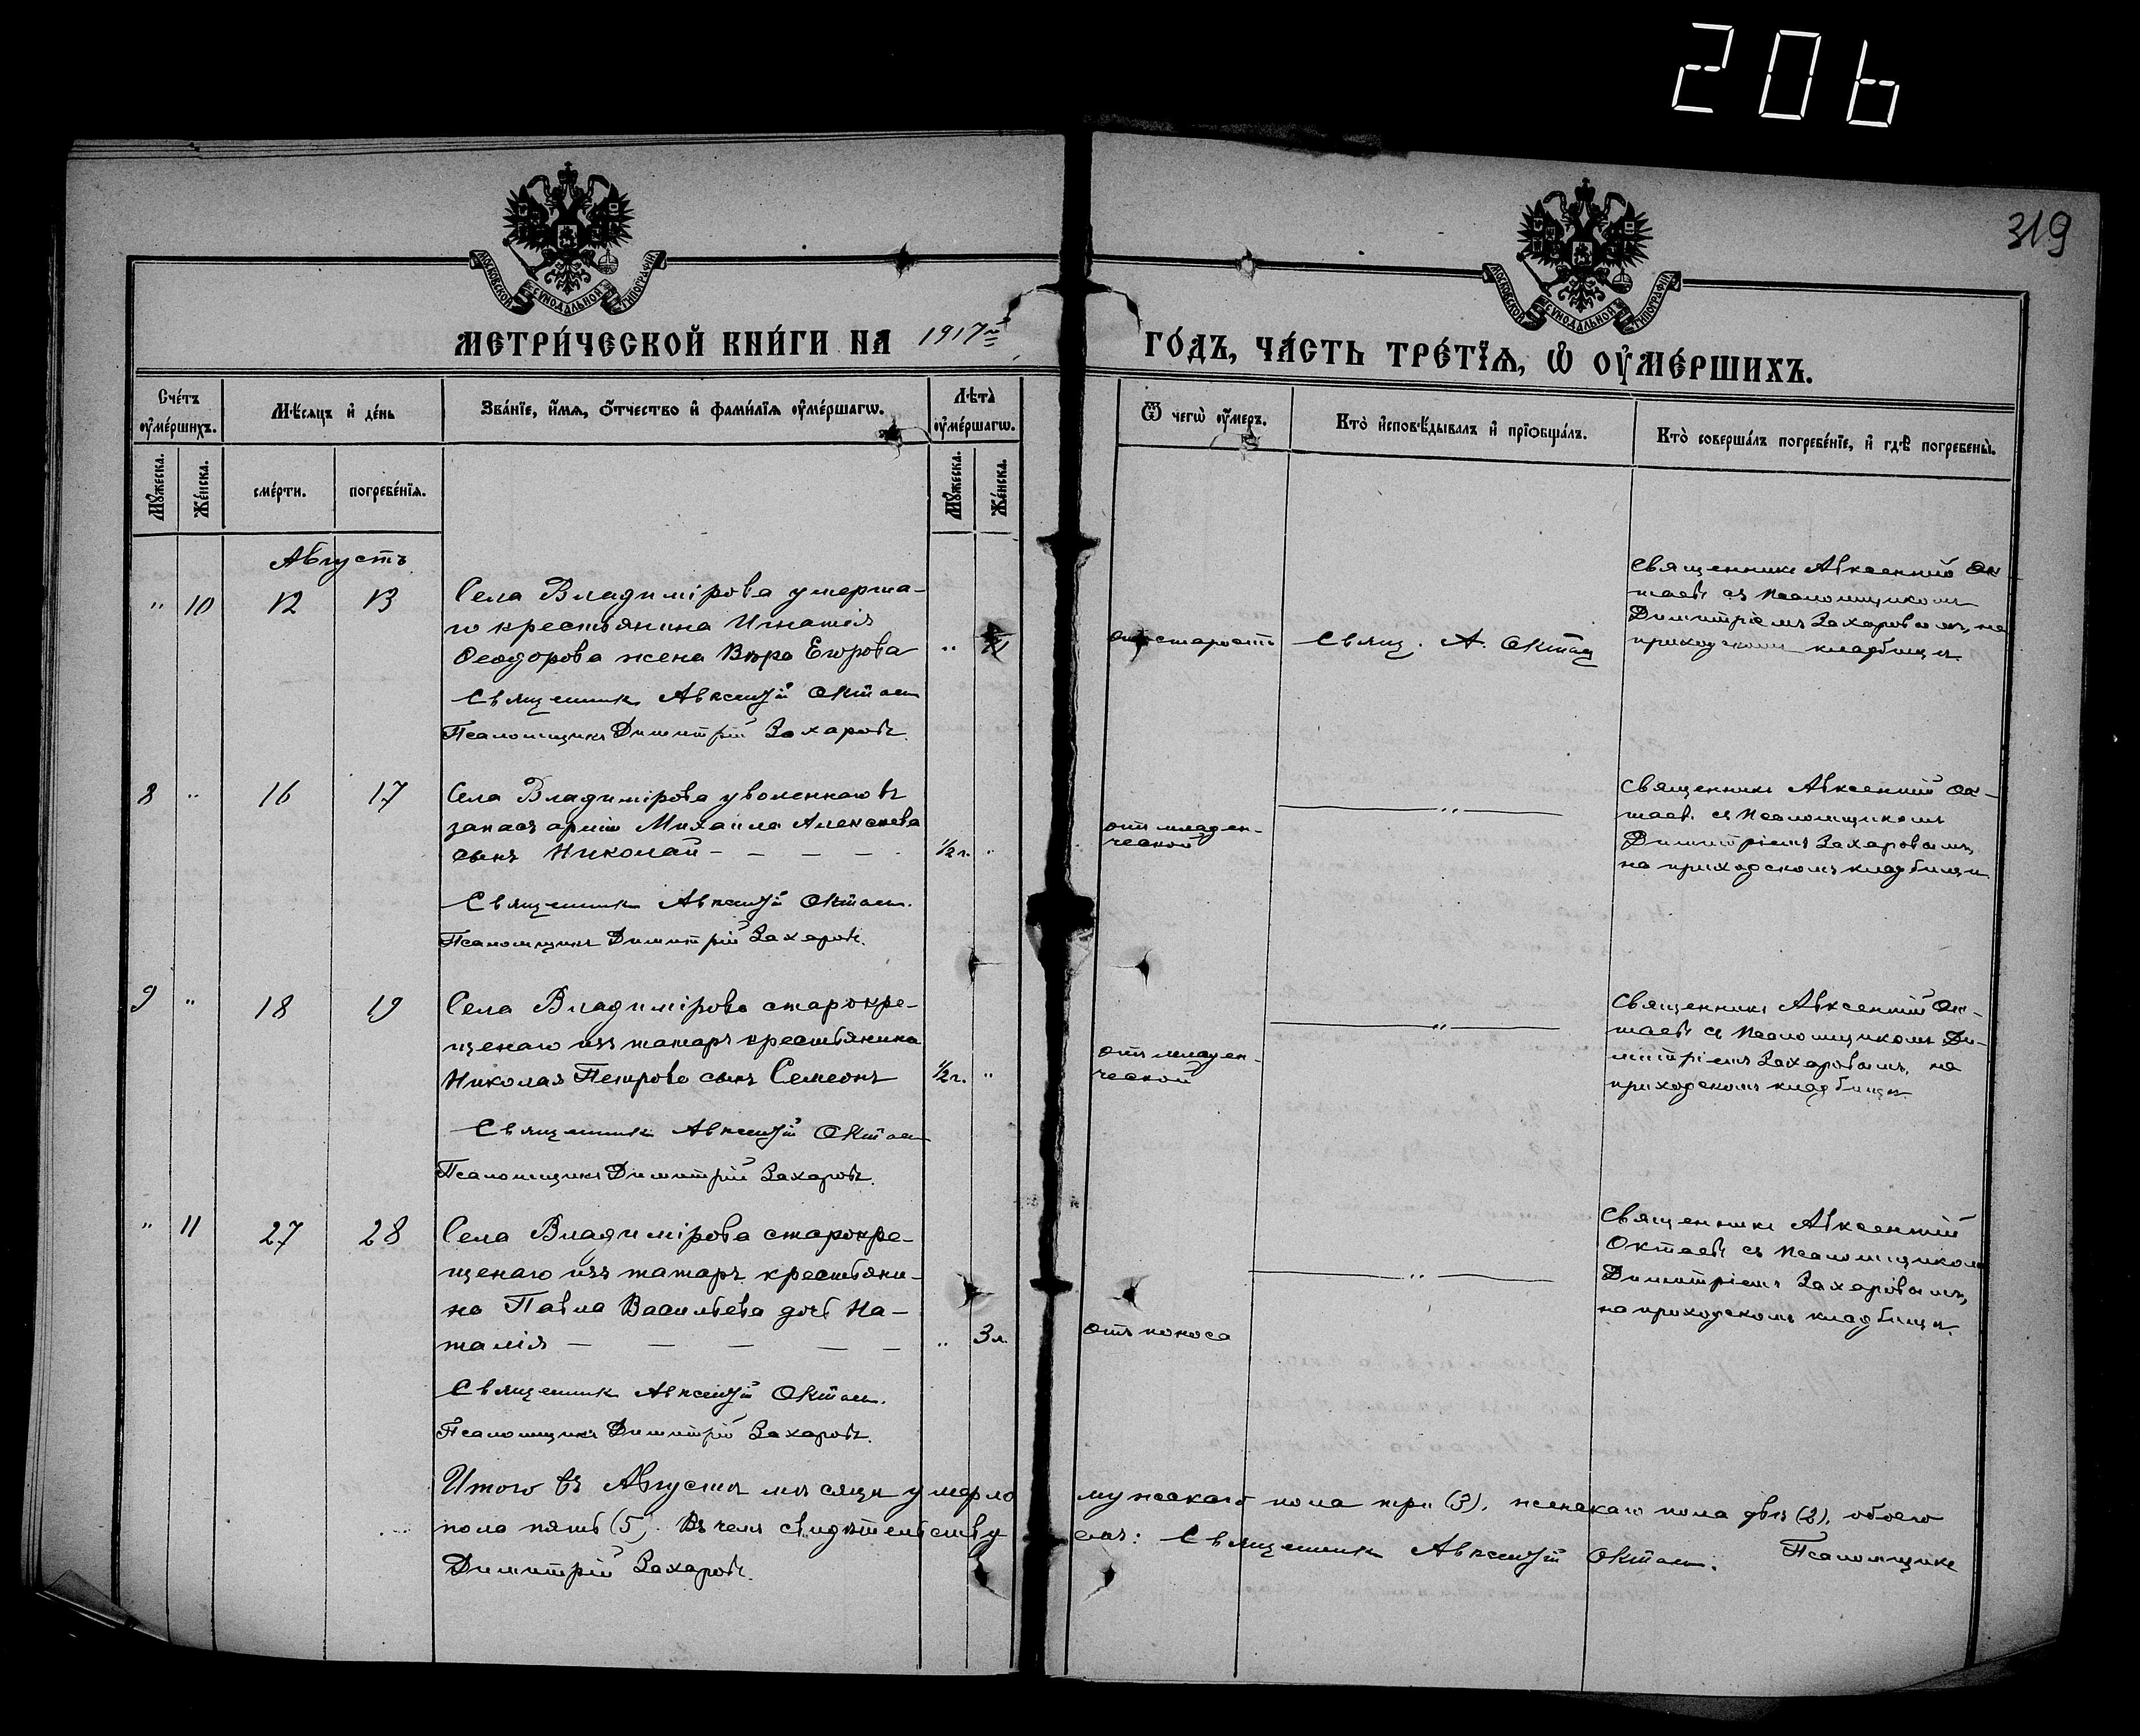 206
319
МОСКОВСКОЙ СѴНОДАЛЬНОЙ ТИПОГРАФІИ
МОСКОВСКОЙ СѴНОДАЛЬНОЙ ТИПОГРАФІИ
МЕТРИ́ЧЕСКОЙ КНИ́ГИ НА 1917й ГО́ДЪ, ЧА́СТЬ ТРЕ́ТЇѦ, Ѡ҆ ОУ҆МЕ́РШИХЪ.
Сче́тъ оу҆ме́ршихъ.
Мѣ́сяцъ и҆ де́нь
Зва́нїе, и҆́мѧ, ѻ҆́тчество и҆ фами́лїѧ оу҆ме́ршагѡ.
Лѣ́та оу҆ме́ршагѡ.
Ѿ чегѡ̀ оу҆́меръ.
Кто̀ и҆сповѣ́дывалъ и҆ прїѡбща́лъ.
Кто̀ соверша́лъ погребе́нїе, и҆ гдѣ̀ погребены̀.
Мꙋ́жеска.
Же́нска.
сме́рти.
погребе́нїѧ.
Мꙋ́жеска.
Же́нска.
Августъ
" 10 12 13
Села Владимірова умерша-
го крестьянина Игнатія
Ѳеодорова жена Вѣра Егорова "
Священник Авксентій Октаев
Псаломщикъ Димитрій Захаровъ.
отъ старости
Свящ. А. Октаев
Священникъ Авксентій Ок-
таевъ съ псаломщикомъ
Димитріемъ Захаровымъ, на
приходскомъ кладбищѣ.
8 " 16 17
Села Владимірова уволеннаго въ
запасъ арміи Михаила Алексѣева
сынъ Николай - - - - - 1/2 г. "
Священник Авксентій Октаев.
Псаломщикъ Димитрій Захаровъ.
отъ младен-
ческой
"
Священникъ Авксентій Ок-
таевъ съ псаломщикомъ
Димитріемъ Захаровымъ,
на приходскомъ кладбищѣ
9 " 18 19
Села Владимірова старокре-
щенаго изъ татаръ крестьянина
Николая Петрова сынъ Семеонъ 1/2 г. "
Священник Авксентій Октаев
Псаломщикъ Димитрій Захаровъ.
отъ младен-
ческой
"
Священникъ Авксентій Ок-
таевъ съ псаломщикомъ Ди-
митріемъ Захаровымъ, на
приходскомъ кладбищѣ.
" 11 27 28
Села Владимірова старокре-
щенаго изъ татаръ крестьяни-
на Павла Васильева дочь На-
талія - - - - - " 3 л.
Священник Авксентій Октаев.
Псаломщикъ Димитрій Захаровъ.
отъ поноса
"
Священникъ Авксентій
Октаевъ съ псаломщиком
Димитріемъ Захаровымъ,
на приходскомъ кладбищѣ.
Итого въ Августѣ мѣсяцѣ умерло мужескаго пола три (3), женскаго пола двѣ (2), обоего
пола пять (5). Въ чемъ свидѣтельству емъ: Священник Авксентій Октаев. Псаломщикъ
Димитрій Захаровъ.